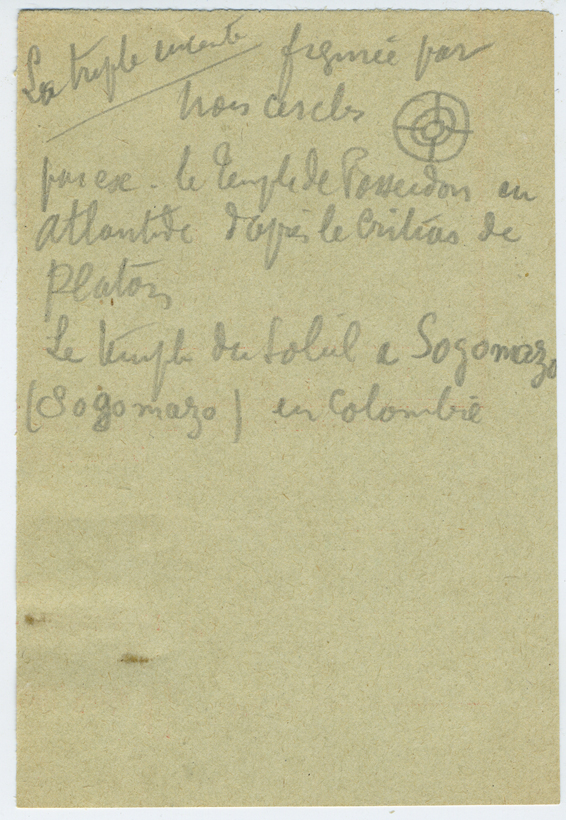 La triple enceinte figurée par
trois cercles
par ex. le Temple de Posseidon en
atlantide d'après le Critias de
Platon
Le temple du Soleil a Sogomazo
(Sogomazo) en Colombie